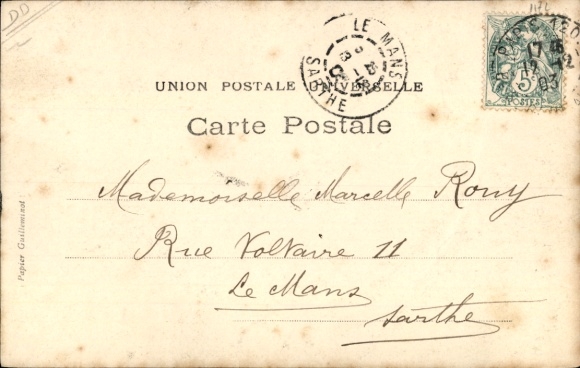 DD
LE MANS
SARTHE
17
12
03
5
POSTES
UNION POSTALE UNIVERSELLE
Carte Postale
Mademoiselle Marcelle Rouy
Rue Voltaire 11
Le Mans
Sarthe
Papier Guilleminot